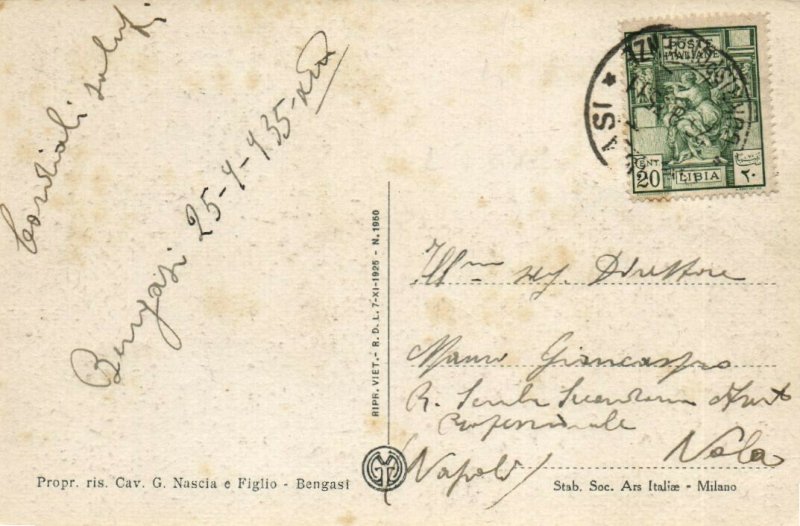 Cordiali saluti
Bengasi 25-9-935-XIII
POSTE
ITALIANE
CENT
20
LIBIA
٢٠
ASI
RIPR. VIET. - R. D. L. 7-XI-1925 - N. 1950
Ill mo sig. Direttore
Mauro Giancaspro
R. Scuola Secondaria
Professionale
Nola
(Napoli)
Propr. ris. Cav. G. Nascia e Figlio - Bengasi
Stab. Soc. Ars Italiæ - Milano